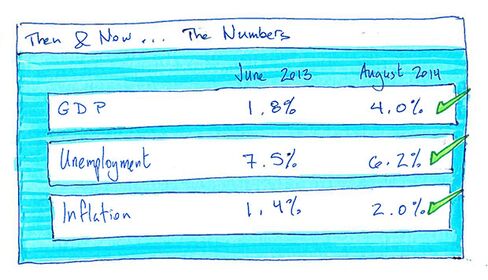 Then & Now... The Numbers
June 2013 August 2014
GDP 1.8% 4.0%
Unemployment 7.5% 6.2%
Inflation 1.4% 2.0%